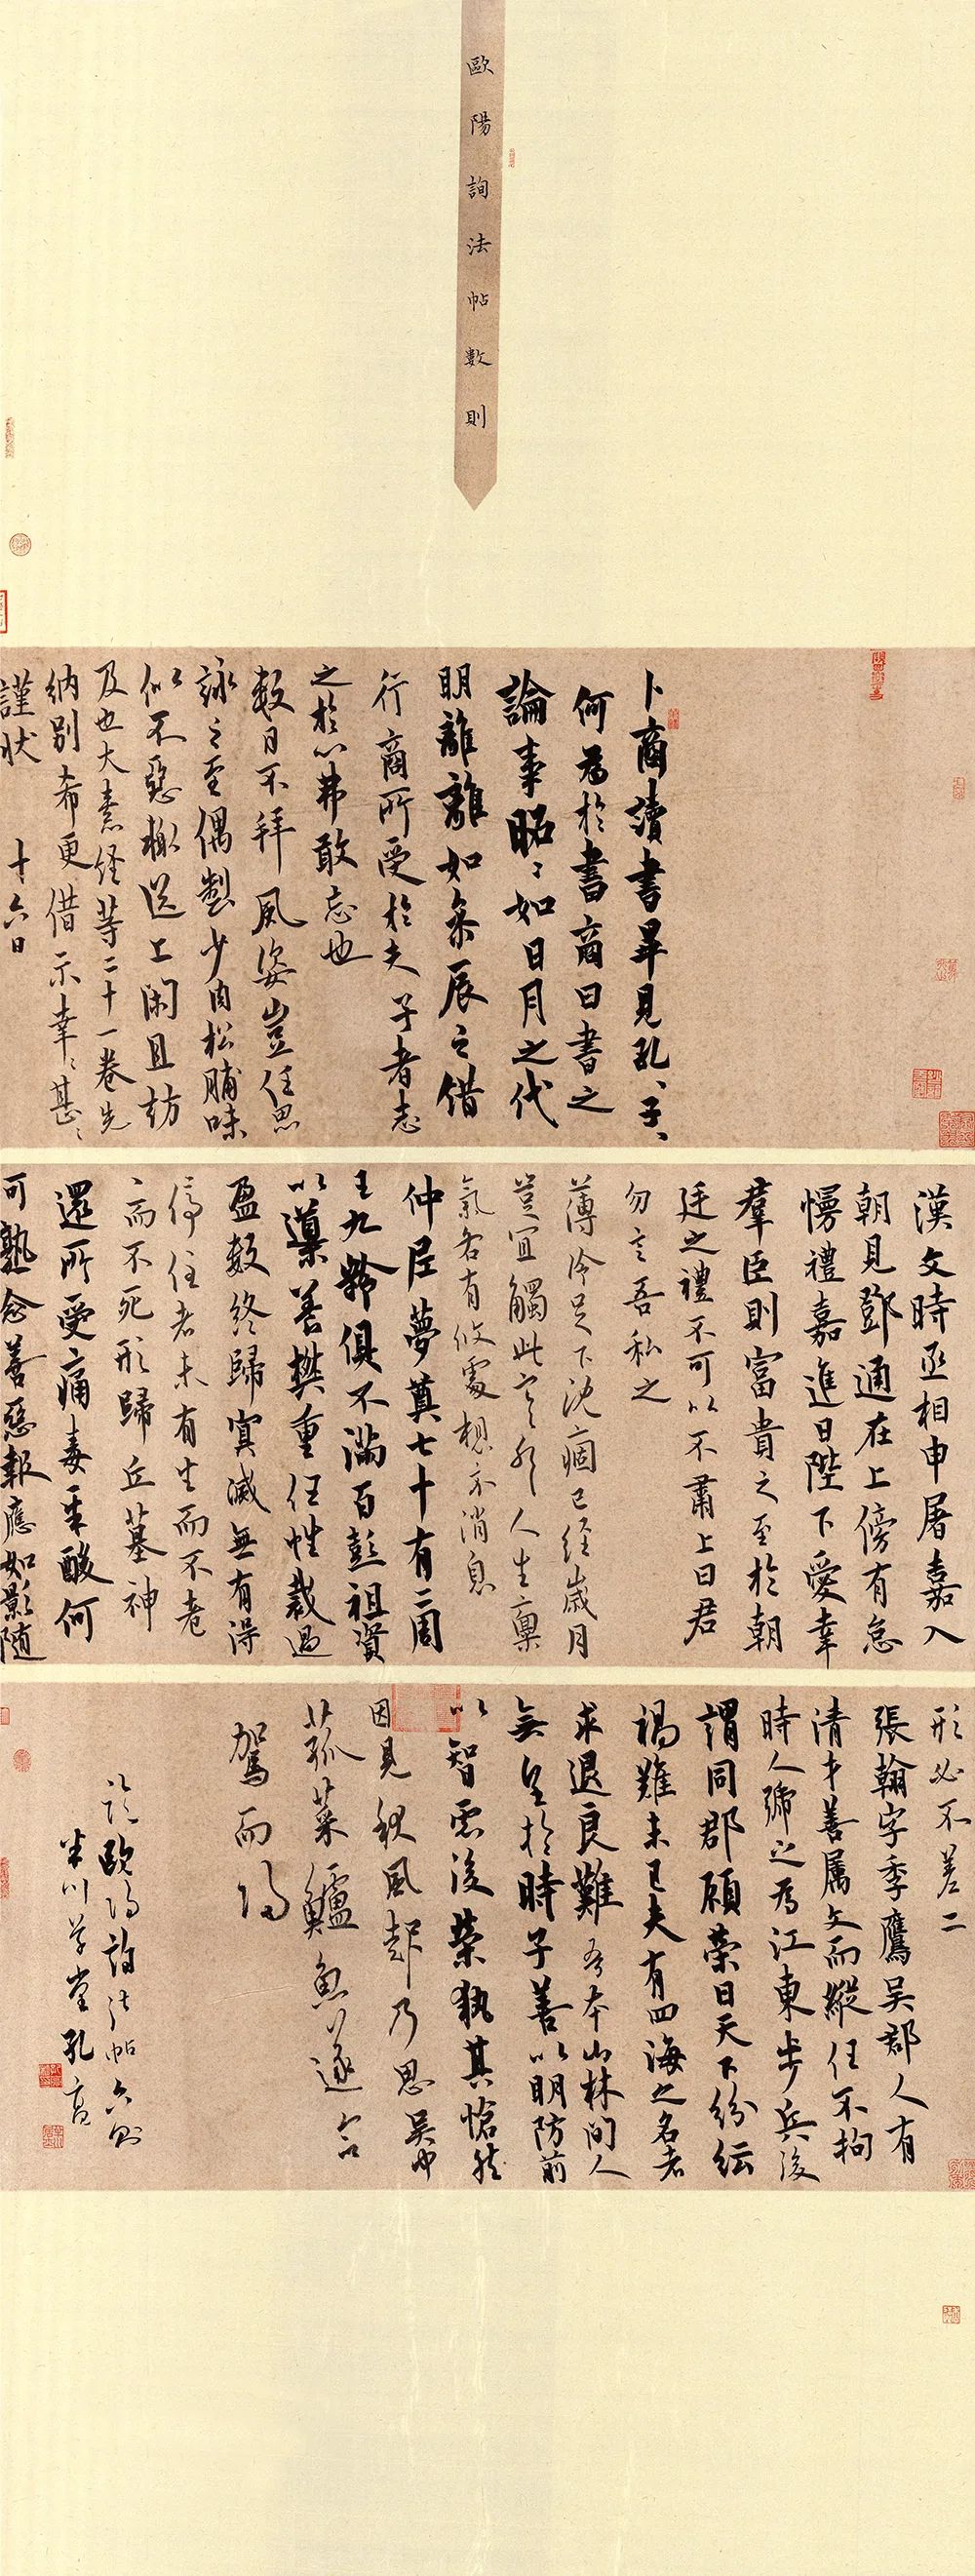 歐陽詢法帖數則
卜商讀書畢見孔、子、
何為於書商曰書之
論事昭〻如日月之代
明離離如參辰之錯
行商所受於夫子者志
之於心弗敢忘也
數日不拜風姿豈任思
詠之至偶製少肉松脯味
似不惡輒送上閑且訪
及也大素經等二十一卷先
納別希更借示幸〻甚〻
謹狀 十六日
漢文時丞相申屠嘉入
朝見鄧通在上傍有怠
慢禮嘉進曰陛下愛幸
羣臣則富貴之至於朝
廷之禮不可以不肅上曰君
勿言吾私之
薄冷足下沈痼已經歲月
豈宜觸此寒耶人生稟
氣各有攸處想示消息
仲尼夢奠七十有二周
王九齡俱不滿百彭祖資
以導養樊重任性裁過
盈數終歸冥滅無有得
停住者未有生而不老
〻而不死形歸丘墓神
還所受痛毒辛酸何
可熟念善惡報應如影隨
形必不差二
張翰字季鷹吳郡人有
清才善屬文而縱任不拘
時人號之為江東步兵後
謂同郡顧榮曰天下紛紜
禍難未已夫有四海之名者
求退良難吾本山林間人
無望於時子善以明防前
以智慮後榮執其愴然
因見秋風起乃思吳中
菰菜鱸魚遂命
駕而歸
臨歐陽詢法帖六則
半川草堂孔